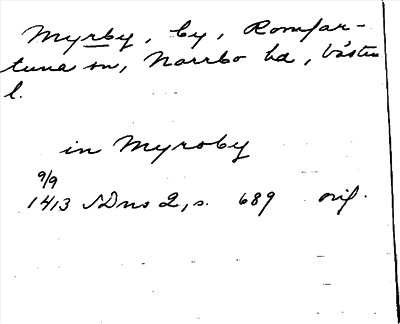 Myrby, by, Romfar-
tuna sn, Norrbo hd, Västm
l.
in Myroby
9/9
1413 SDns 2, s. 689 orig.